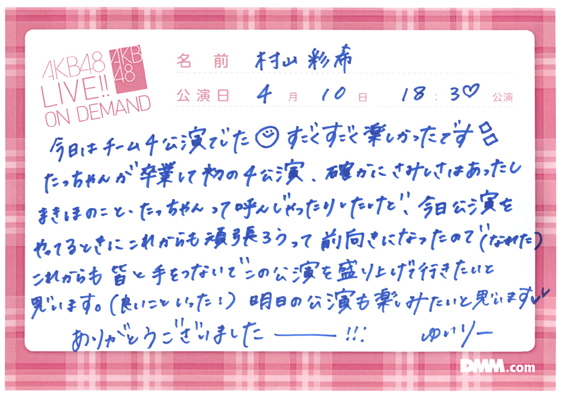 AKB48
LIVE!!
ON DEMAND
AKB
48
名前 村山彩希
公演日 4月10日 18:30公演
今日はチーム4公演でした すごくすごく楽しかったです
たっちゃんが卒業して初の4公演、確かにさみしさはあったし
まきほのこと、たっちゃんって呼んじゃったりしたけど、今日公演を
やってるときにこれからも頑張ろうって前向きになったので(なれた)
これからも皆と手をつないでこの公演を盛り上げて行きたいと
思います。(良いこといった!)明日の公演も楽しみたいと思います
ありがとうございました———!!! ゆいりー
DMM.com